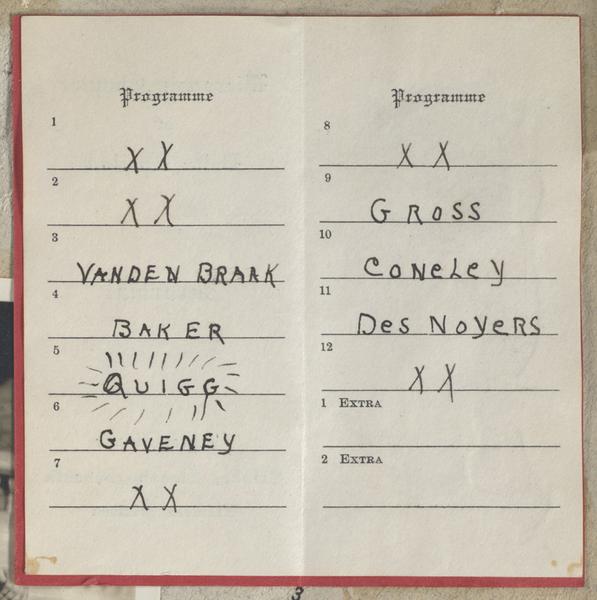 Programme
1
X X
2
X X
3
VANDEN BRAAK
4
BAKER
5
QUIGG
6
GAVENEY
7
X X
Programme
8
X X
9
GROSS
10
CONELEY
11
DES NOYERS
12
X X
1 EXTRA
2 EXTRA
3